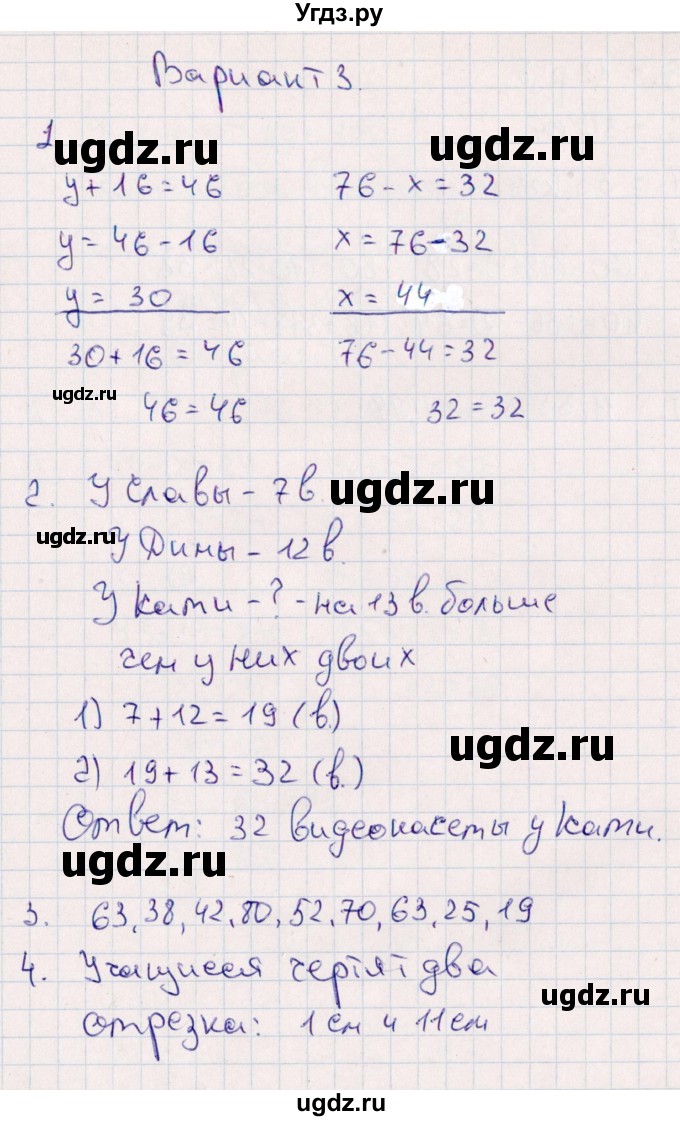 Угдз.ру
Вариант 3.
1
ugdz.ru ugdz.ru
y + 16 = 46 76 - x = 32
y = 46 - 16 x = 76 - 32
y = 30 x = 44
30 + 16 = 46 76 - 44 = 32
ugdz.ru
46 = 46 32 = 32
2. У Славы - 7 в. ugdz.ru
ugdz.ru У Дины - 12 в.
У Кати - ? - на 13 в. больше
чем у них двоих
1) 7 + 12 = 19 (в.)
ugdz.ru
2) 19 + 13 = 32 (в.)
Ответ: 32 видеокасеты у Кати.
ugdz.ru
3. 63, 38, 42, 80, 52, 70, 63, 25, 19
4. Учащиеся чертят два
ugdz.ru
отрезка: 1 см и 11 см
ugdz.ru